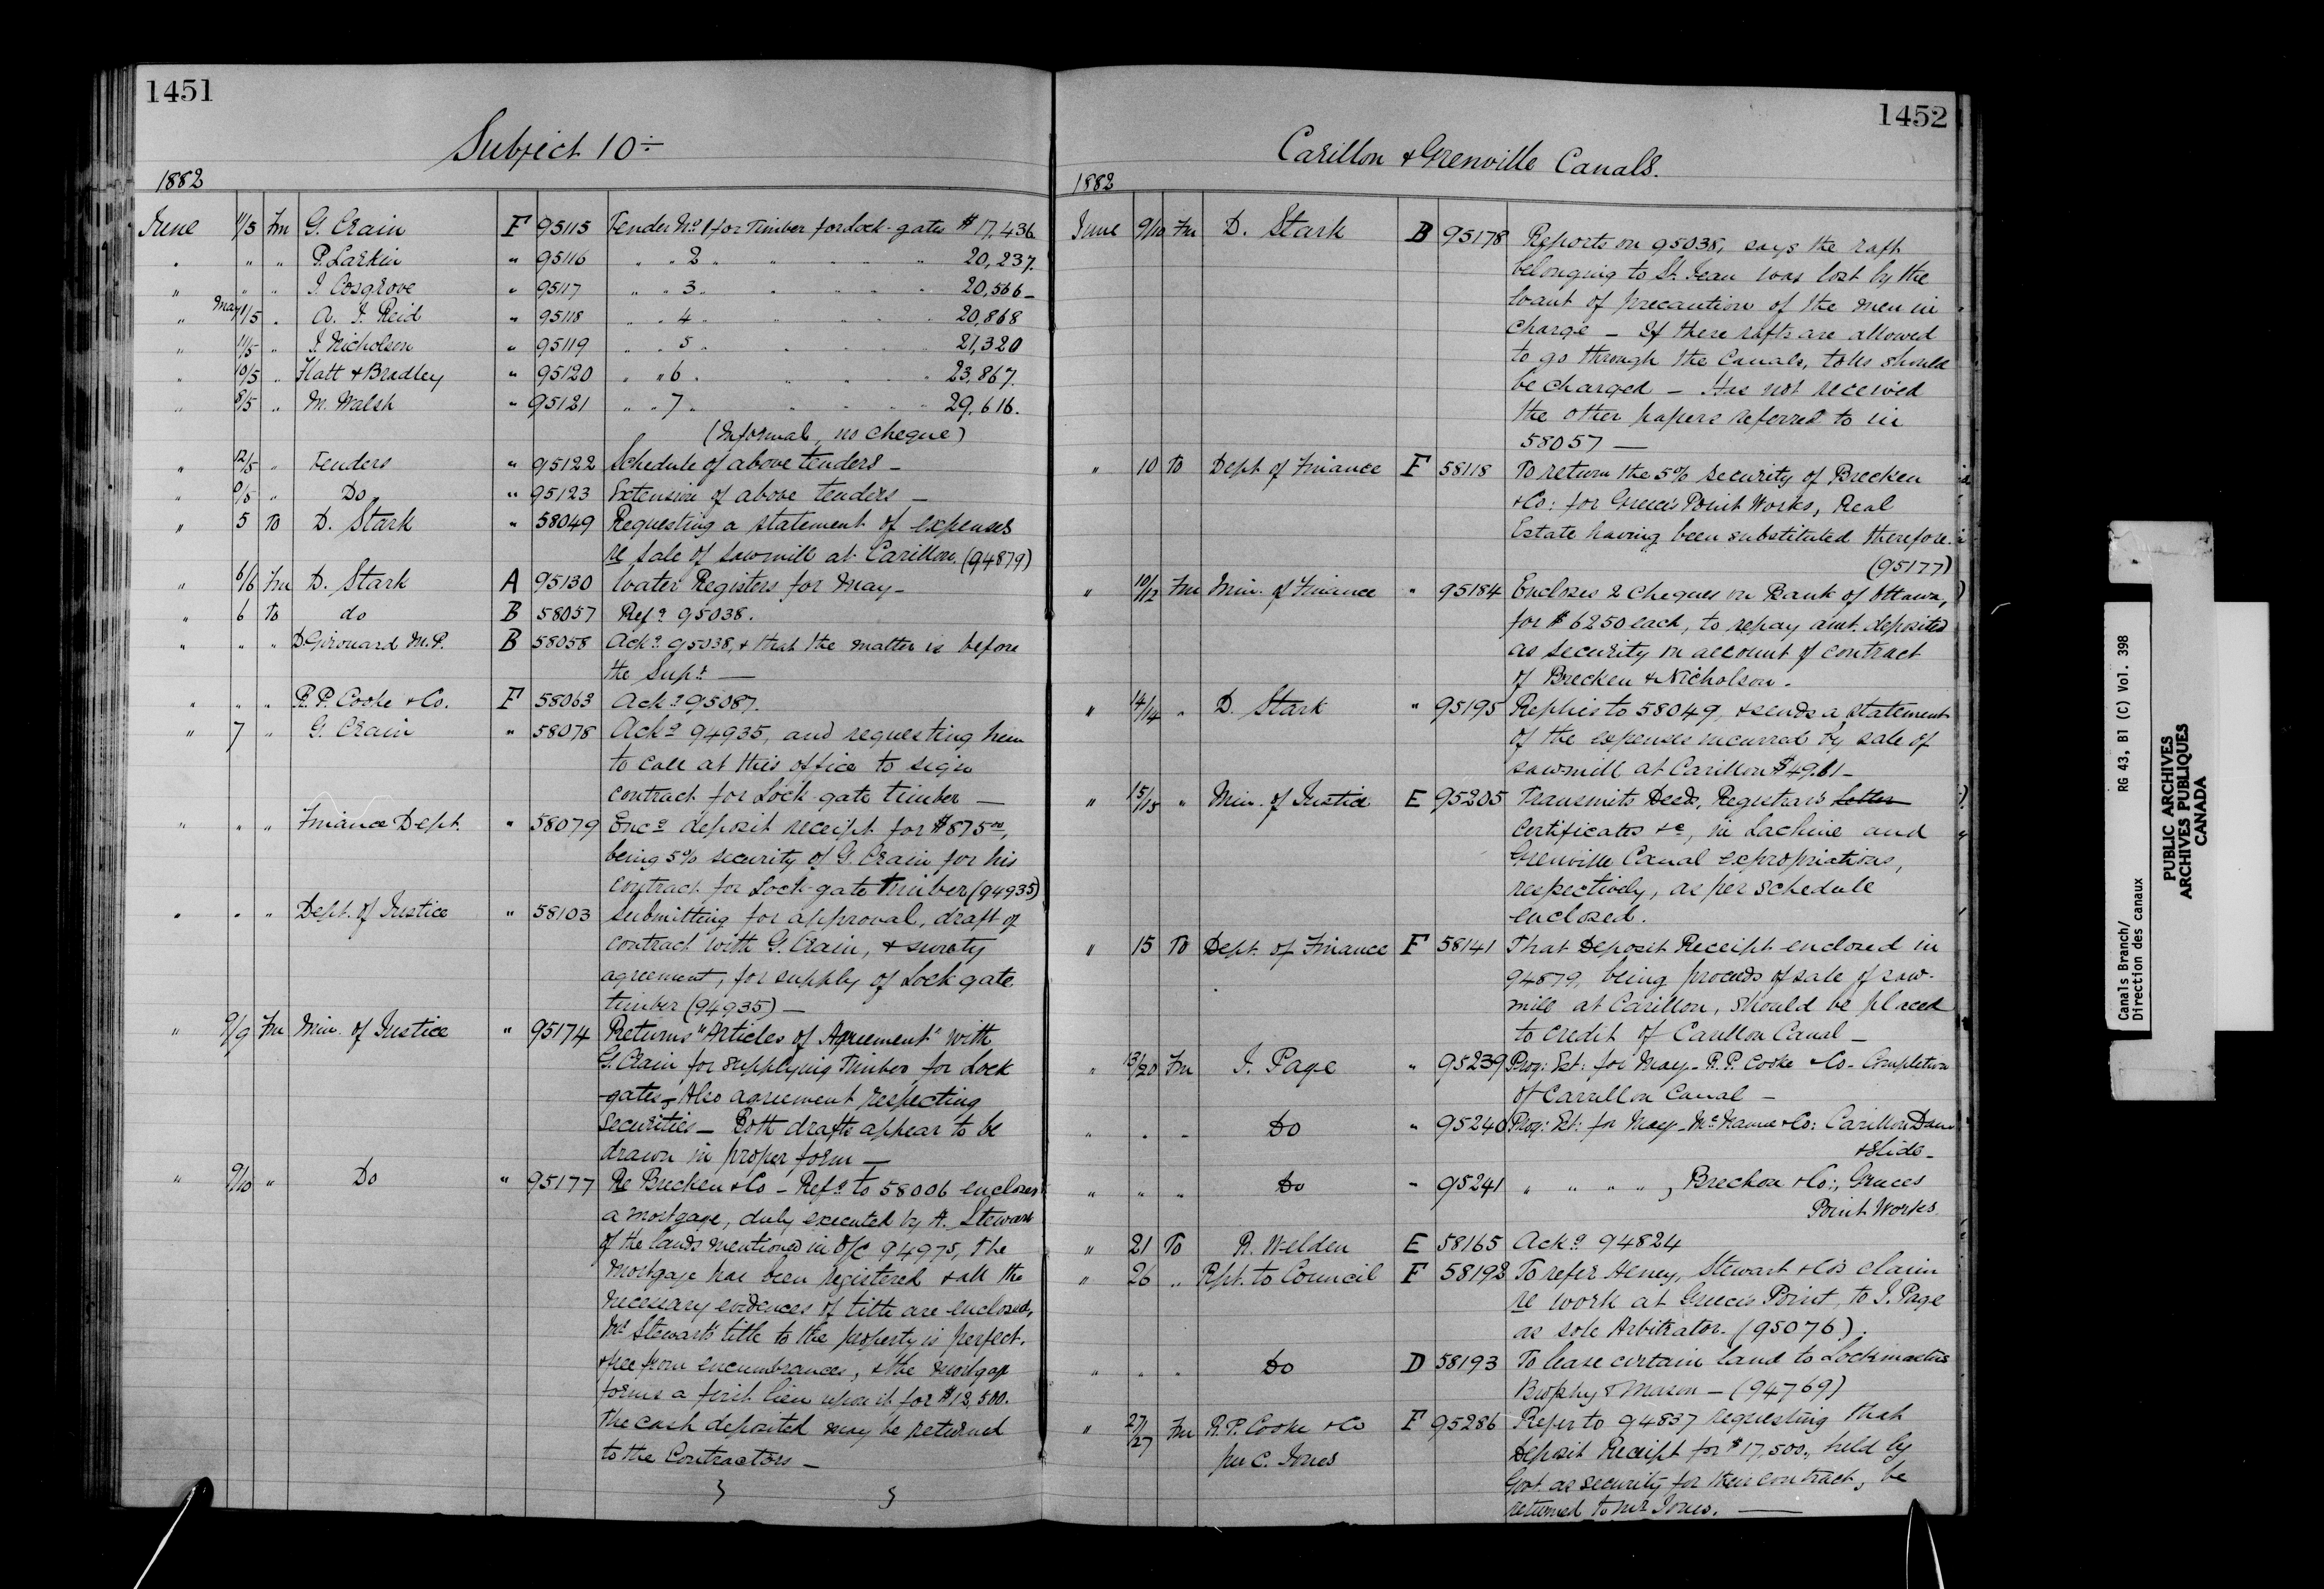 1451
Subject 10÷
1882
June 11/5 Fm G. Crain F 95115 Tender No 1 for Timber for Lock-gates $17,436
" " " P. Larkin " 95116 " " 2 " " " " 20,237.
" " " J. Cosgrove " 95117 " " 3 " " " " 20,566_
" May 11/5 " A. J. Reid " 95118 " " 4 " " " " 20,868
" 11/5 " J. Nicholson " 95119 " " 5 " " " " 21,320
" 10/5 " Flatt & Bradley " 95120 " " 6 " " " " 23,867.
" 8/5 " M. Walsh " 95121 " " 7 " " " " 29,616.
(Informal, no cheque)
" 12/5 " Tenders " 95122 Schedule of above tenders _
" 9/5 " Do " 95123 Extension of above tenders _
" 5 To D. Stark " 58049 Requesting a statement of expenses
re sale of sawmill at Carillon. (94879)
" 6/6 Fm D. Stark A 95130 Water Registers for May_
" 6 To do B 58057 Refg 95038.
" " " D Girouard M.P. B 58058 Ackg 95038, & that the matter is before
the Supt _
" " " R. P. Cooke & Co. F 58063 Ackg 95087.
" 7 " G. Crain " 58078 Ackg 94935, and requesting him
to call at this office to sign
contract for Lock-gate timber _
" " " Finance Dept. " 58079 Encg deposit receipt for $875 00,
being 5% security of G. Crain for his
contract for Lock-gate timber (94935)
" " " Dept. of Justice " 58103 Submitting for approval, draft of
contract with G. Crain, & surety
agreement, for supply of Lock gate
timber (94935) _
" 9/9 Fm Min. of Justice " 95174 Returns "Articles of Agreement" with
G. Crain for supplying timber for Lock
gates_ Also agreement respecting
securities _ Both drafts appear to be
drawn in proper form _
" 9/10 " Do " 95177 Re Brecken & Co _ Refg to 58006 encloses
a mortgage, duly executed by A. Stewart
of the lands mentioned in O/C 94975, The
mortgage has been registered & all the
necessary evidences of title are enclosed,
Mr Stewart's title to the property is perfect.
& free from encumbrances, & the mortgage
forms a first lien upon it for $12,500.
The cash deposited may be returned
to the Contractors _
1452
Carillon & Grenville Canals.
1882
June 9/10 Fm D. Stark B 95178 Reports on 95038, says the raft
belonging to St. Jean was lost by the
want of precaution of the men in
charge _ If these rafts are allowed
to go through the Canals, tolls should
be charged _ Has not received
the other papers referred to in
58057 _
" 10 To Dept of Finance F 58118 To return the 5% security of Brecken
& Co: for Greece's Point Works, Real
Estate having been substituted therefore.
(95177)
" 10/12 Fm Min. of Finance " 95184 Encloses 2 Cheques on Bank of Ottawa,
for $6250 each, to repay amt. deposited
as security on account of contract
of Brecken & Nicholson.
" 14/14 " D. Stark " 95195 Replies to 58049, & sends a statement
of the expenses incurred by sale of
sawmill at Carillon $49.61_
" 15/15 " Min. of Justice E 95205 Transmits Deeds, Registrar's Letter
Certificates &c, in Lachine and
Grenville Canal expropriations,
respectively, as per schedule
enclosed.
" 15 To Dept. of Finance F 58141 That Deposit Receipt enclosed in
94879, being proceeds of sale of saw-
mill at Carillon, should be placed
to credit of Carillon Canal _
" 13/20 Fm J. Page " 95239 Prog: Est: for May_ R. P. Cooke & Co_ Completion
of Carillon Canal _
" " " Do " 95240 Prog: Est: for May_ McNamee & Co: Carillon Dam
& Slide_
" " " Do " 95241 " " " ", Brecken & Co:, Greeces
Point Works.
" 21 To R. Welden E 58165 Ackg 94824
" 26 " Rpt. to Council F 58192 To refer Heney, Stewart & Co's claim
re work at Greece's Point, to J. Page
as sole Arbitrator. (95076).
" " " Do D 58193 To lease certain land to Lockmasters
Brophy & Mason _ (94769)
" 27/27 Fm R. P. Cooke & Co F 95286 Refer to 94837 requesting that
per C. Jones Deposit Receipt for $17,500, held by
Govt. as security for their contract, be
returned to Mr Jones. _
Canals Branch/ RG 43, B1 (C) Vol. 398
Direction des canaux
PUBLIC ARCHIVES
ARCHIVES PUBLIQUES
CANADA